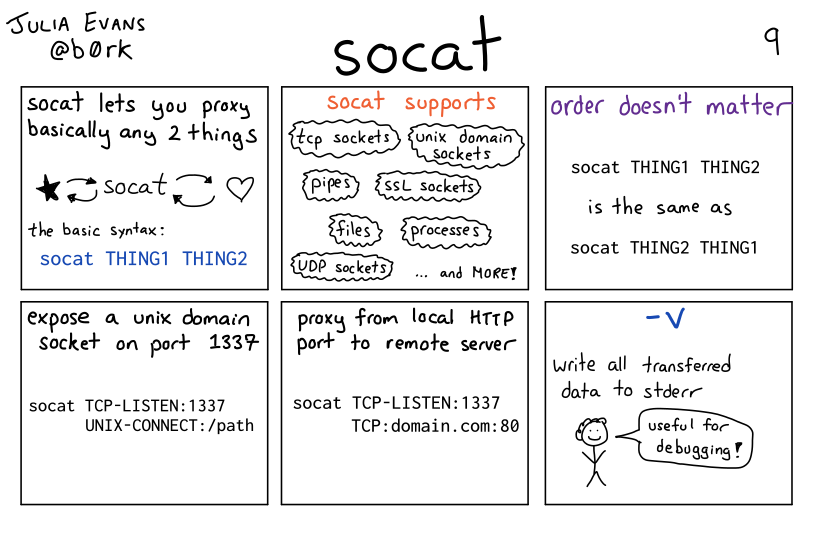 JULIA EVANS
@b0rk
socat
9
socat lets you proxy
basically any 2 things
socat
the basic syntax:
socat THING1 THING2
socat supports
tcp sockets
unix domain
sockets
pipes
SSL sockets
files
processes
UDP sockets
... and MORE!
order doesn't matter
socat THING1 THING2
is the same as
socat THING2 THING1
expose a unix domain
socket on port 1337
socat TCP-LISTEN:1337
UNIX-CONNECT:/path
proxy from local HTTP
port to remote server
socat TCP-LISTEN:1337
TCP:domain.com:80
-v
write all transferred
data to stderr
useful for
debugging!